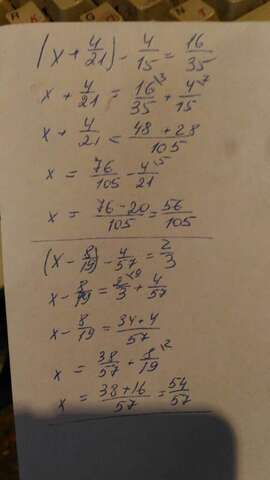 (x + 4/21) - 4/15 = 16/35
x + 4/21 = 16/35 \3 + 4/15 \7
x + 4/21 = 48 + 28/105
x = 76/105 - 4/21 \5
x = 76-20/105 = 56/105
(x - 8/19) - 4/57 = 2/3
x - 8/19 = 2/3 \19 + 4/57
x - 8/19 = 34+4/57
x = 38/57 + 8/19 \2
x = 38+16/57 = 54/57